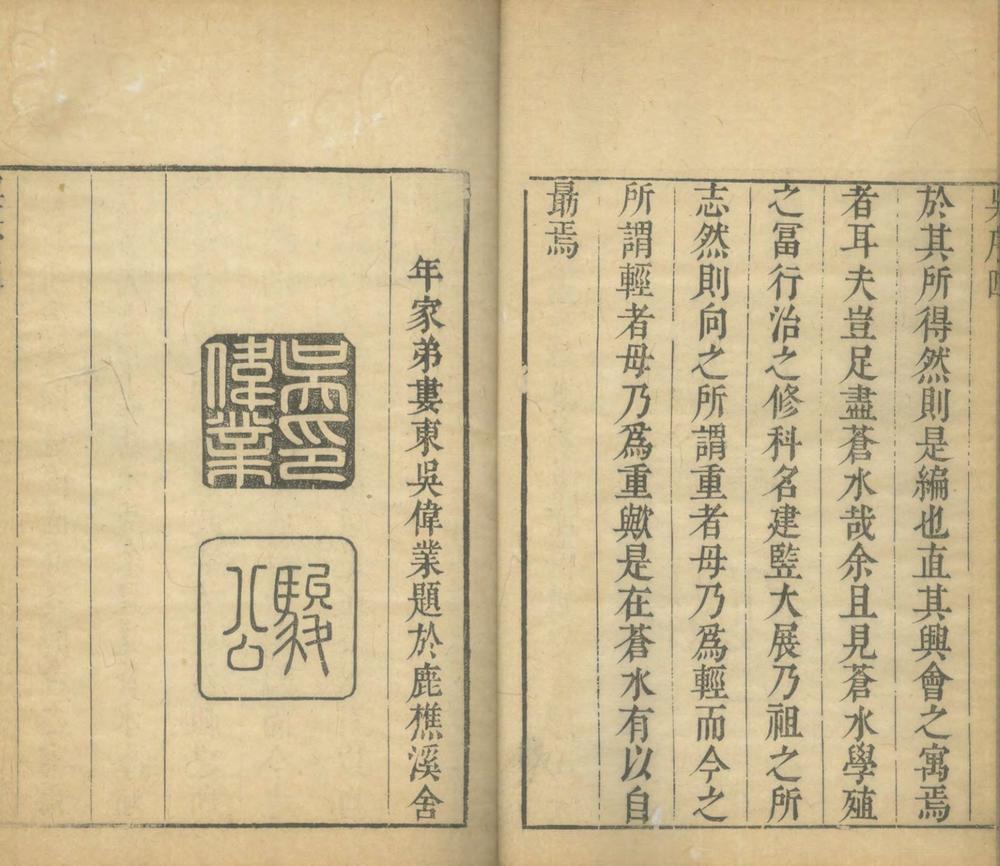 於其所得然則是編也直其興會之寓焉
者耳夫豈足盡蒼水哉余且見蒼水學殖
之富行治之修科名建豎大展乃祖之所
志然則向之所謂重者毋乃爲輕而今之
所謂輕者毋乃爲重歟是在蒼水有以自
勗焉
年家弟婁東吳偉業題於鹿樵溪舍
吳印偉業
駿公